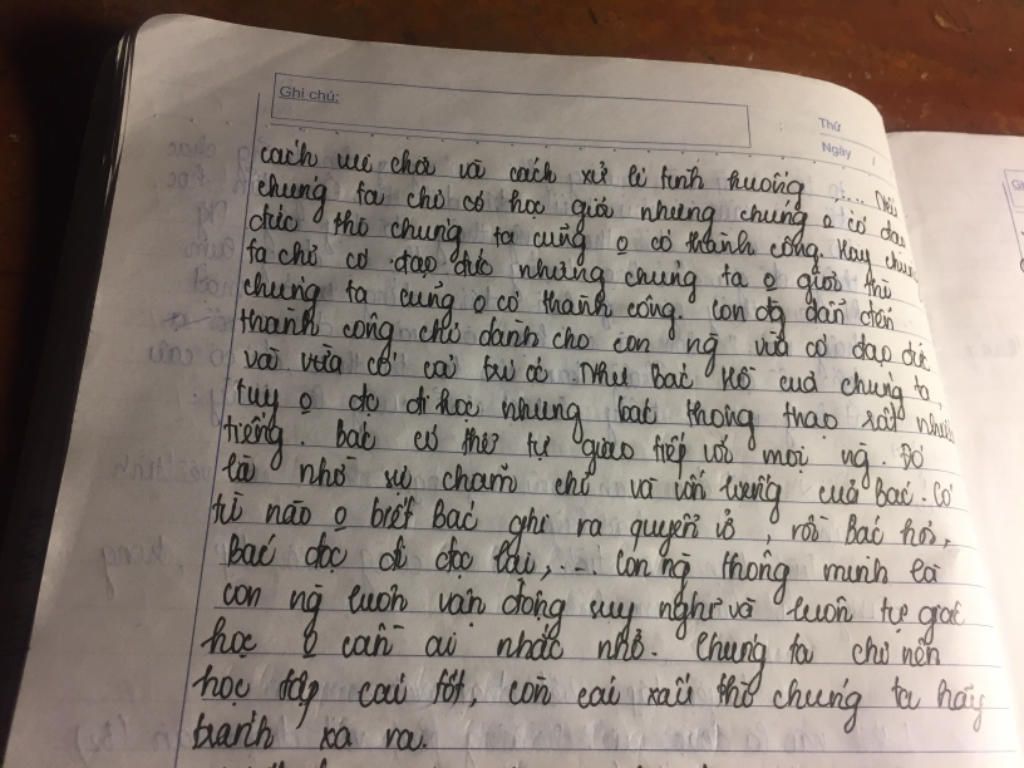 Ghi chú:
Thứ
Ngày
cách vui chơi và cách xử lí tình huống .... Nếu
chúng ta chỉ có học giỏi nhưng chúng o có đạo
đức thì chúng ta cũng o có thành công. Hay chúng
ta chỉ có đạo đức nhưng chúng ta o giỏi thì
chúng ta cũng o có thành công. Con đg dẫn đến
thành công chỉ dành cho con ng vừa có đạo đức
và vừa có cái trí óc. Như Bác Hồ của chúng ta,
tuy o đc đi học nhưng bác thông thạo rất nhiều
tiếng. Bác có thể tự giao tiếp với mọi ng. Đó
là nhờ sự chăm chỉ và vốn lượng của Bác. Có
từ nào o biết Bác ghi ra quyển vở, rồi Bác hỏi,
Bác đọc đi đọc lại,... Con ng thông minh là
con ng luôn vận động suy nghĩ và luôn tự giác
học o cần ai nhắc nhở. Chúng ta chỉ nên
học tập cái tốt, còn cái xấu thì chúng ta hãy
tránh xa ra.